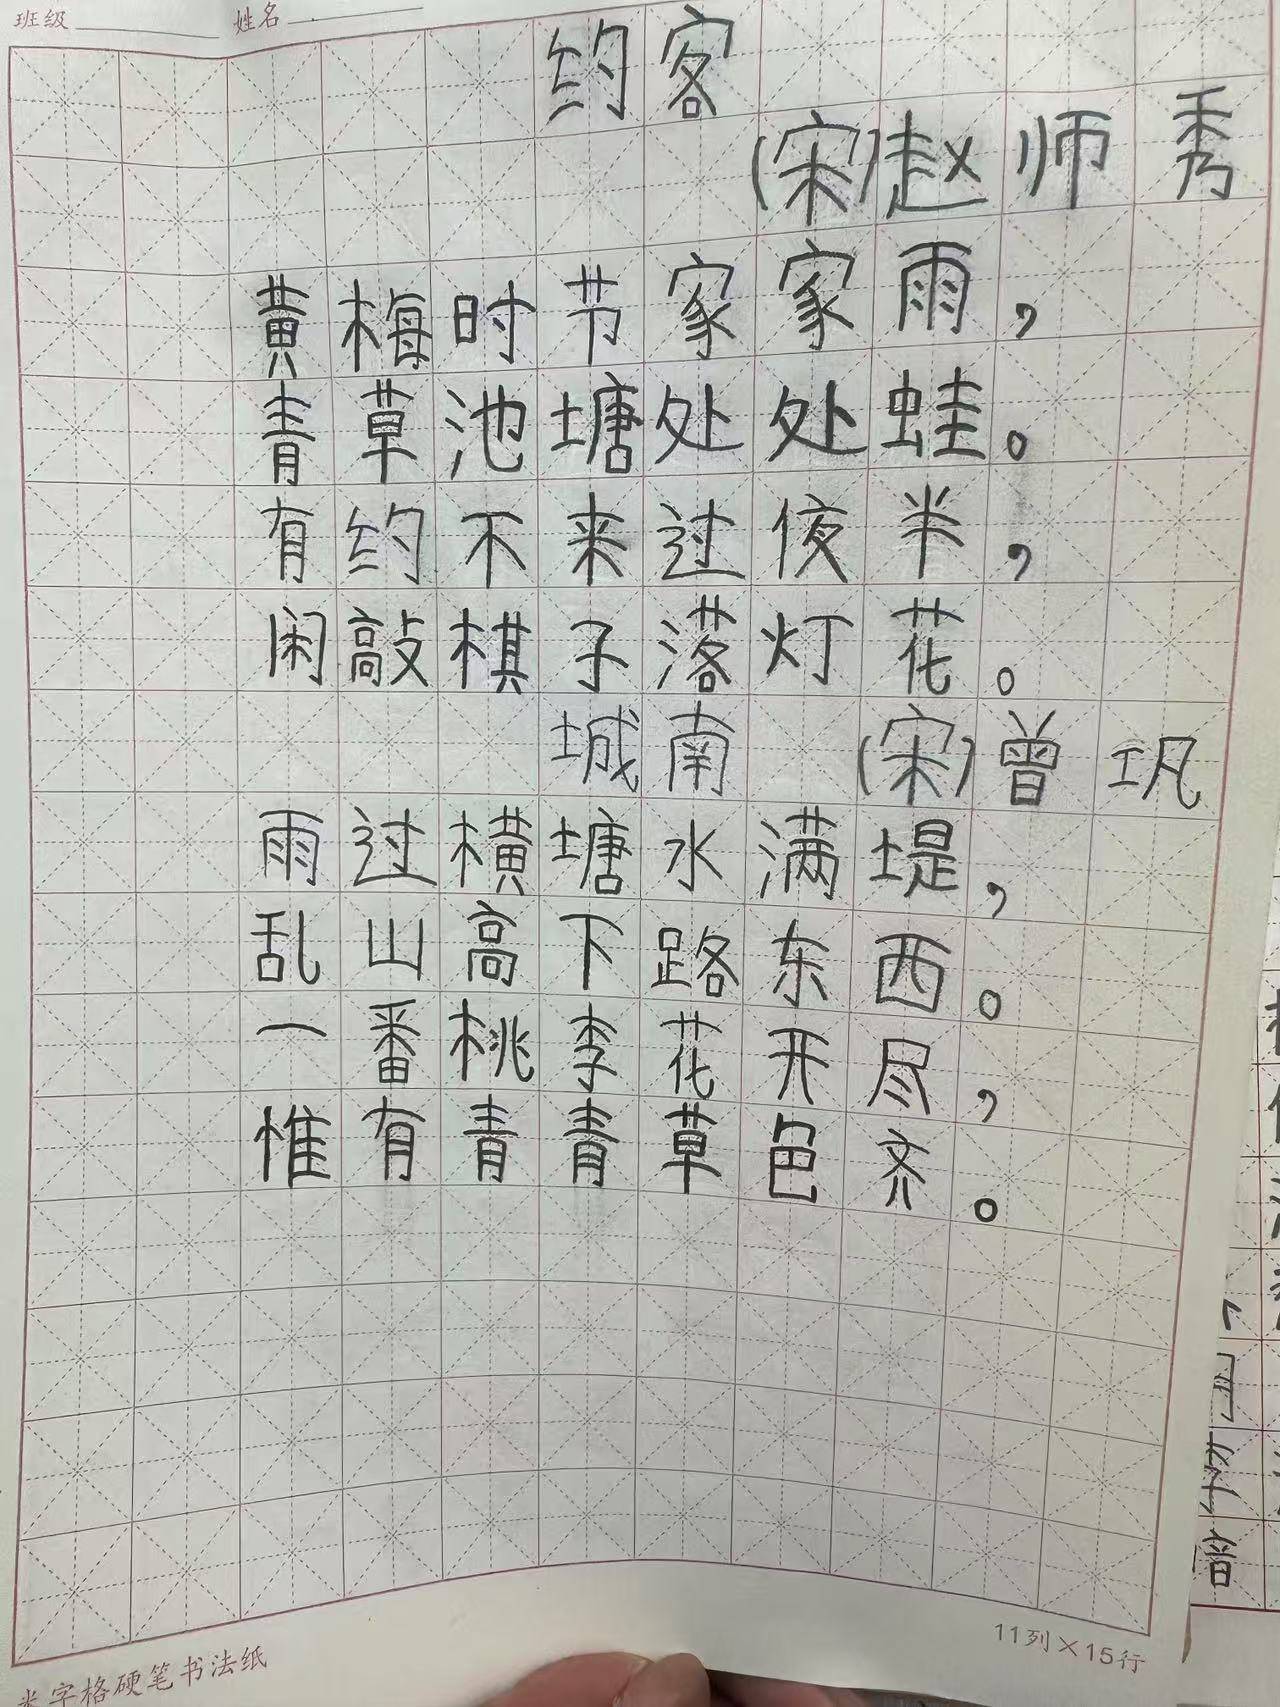 班级 姓名
约客
(宋)赵师秀
黄梅时节家家雨，
青草池塘处处蛙。
有约不来过夜半，
闲敲棋子落灯花。
城南 (宋)曾巩
雨过横塘水满堤，
乱山高下路东西。
一番桃李花开尽，
惟有青青草色齐。
11列×15行
米字格硬笔书法纸